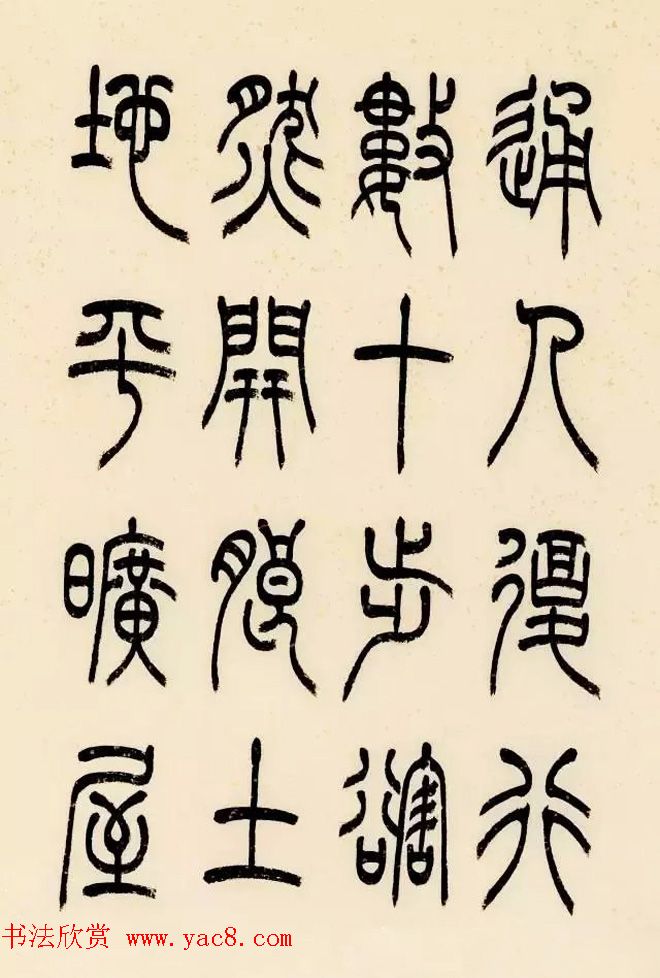 通人復行
數十步豁
然開朗土
地平曠屋
书法欣赏 www.yac8.com